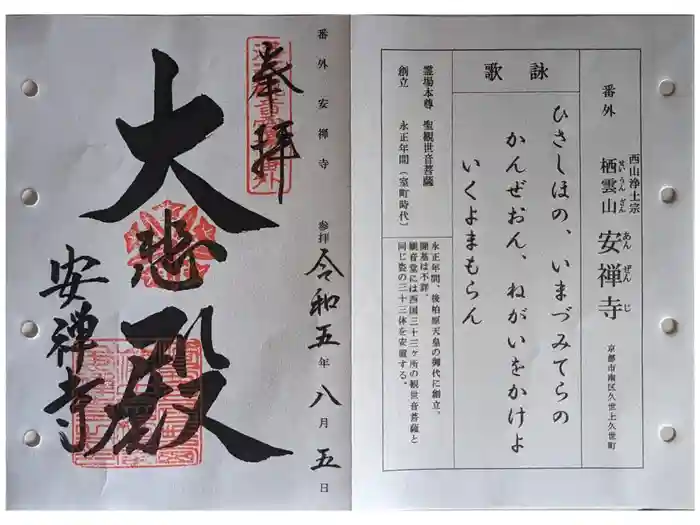 番外
西山浄土宗
栖雲山 安禅寺
せいうんざん あんぜんじ
京都市南区久世上久世町
詠歌
ひさしほの、いまづみてらの
かんぜおん、ねがいをかけよ
いくよまもらん
霊場本尊 聖観世音菩薩
創立 永正年間(室町時代)
永正年間、後柏原天皇の御代に創立。
開基は不詳。
観音堂には西国三十三ヶ所の観世音菩薩と
同じ姿の三十三体を安置する。
番外 安禅寺 参拝 令和五年八月五日
奉拝
大悲殿
安禅寺